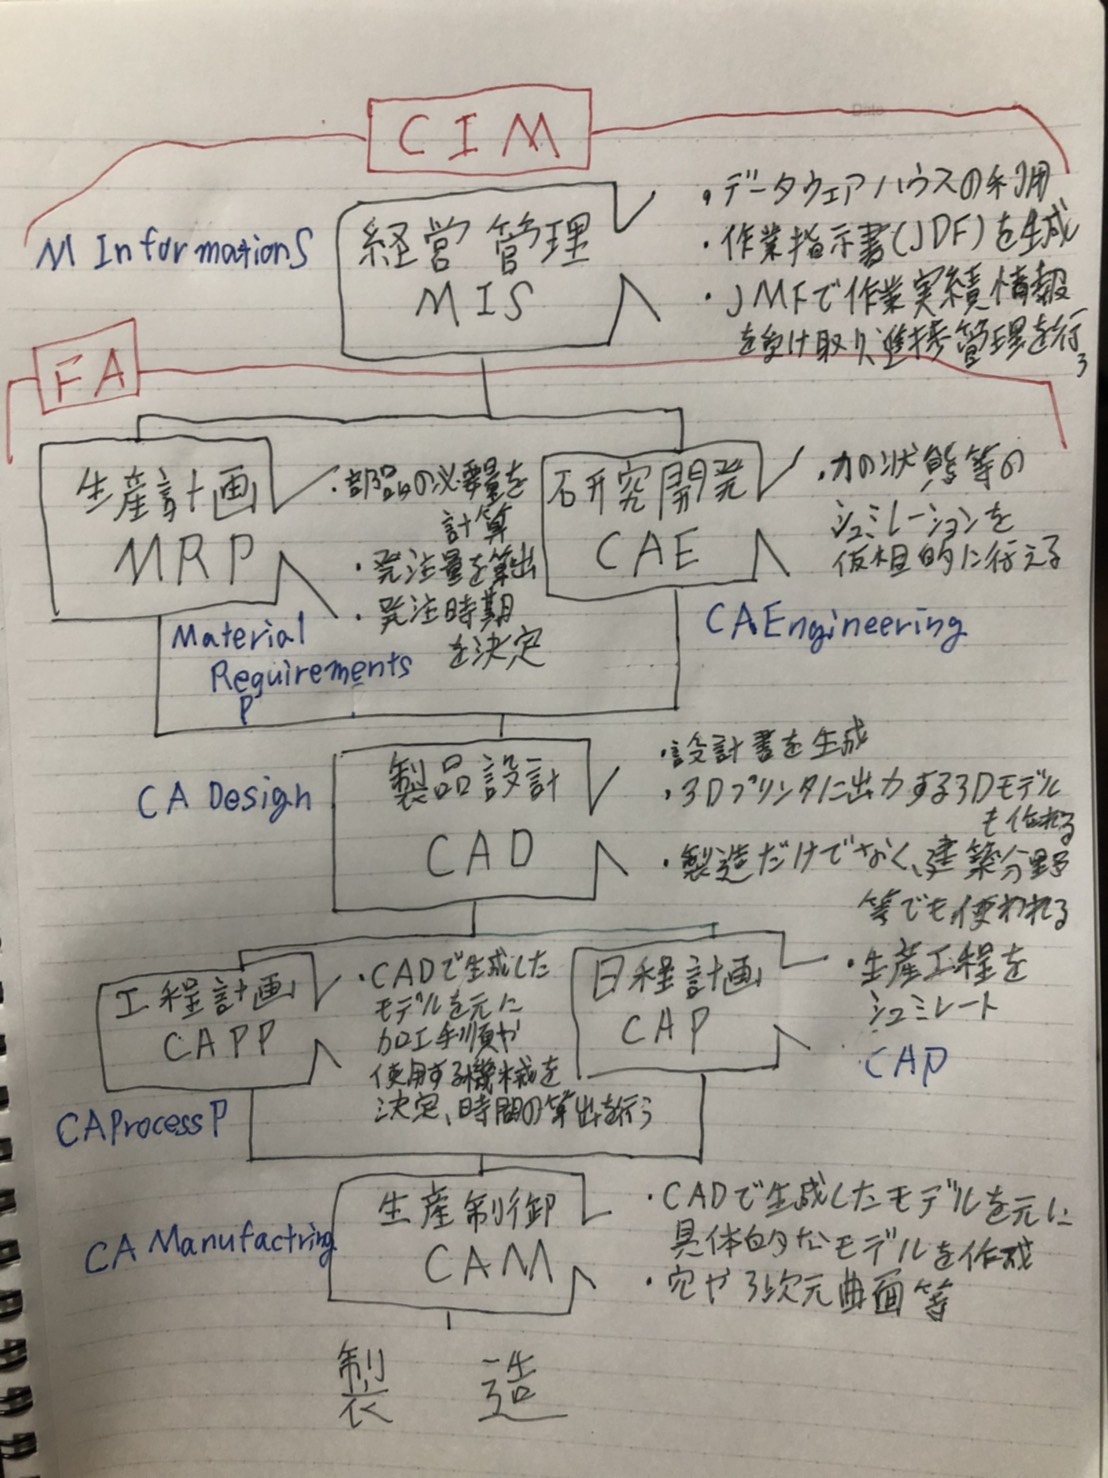 CIM
M InformationS
経営管理
MIS
・データウェアハウスの利用
・作業指示書(JDF)を生成
・JMFで作業実績情報
を受け取り、進捗管理を行う
FA
生産計画
MRP
・部品の必要量を
計算
・発注量を算出
・発注時期
を決定
Material
Requirements
P
研究開発
CAE
・力の状態等の
シュミレーションを
仮想的に行える
CAEngineering
CA Design
製品設計
CAD
・設計書を生成
・3Dプリンタに出力する3Dモデル
も作れる
・製造だけでなく、建築分野
等でも使われる
工程計画
CAPP
・CADで生成した
モデルを元に
加工手順や
使用する機械を
決定、時間の算出を行う
CAProcessP
日程計画
CAP
・生産工程を
シュミレート
CAP
CA Manufactring
生産制御
CAM
・CADで生成したモデルを元に
具体的なモデルを作成
・穴や3次元曲面等
製造